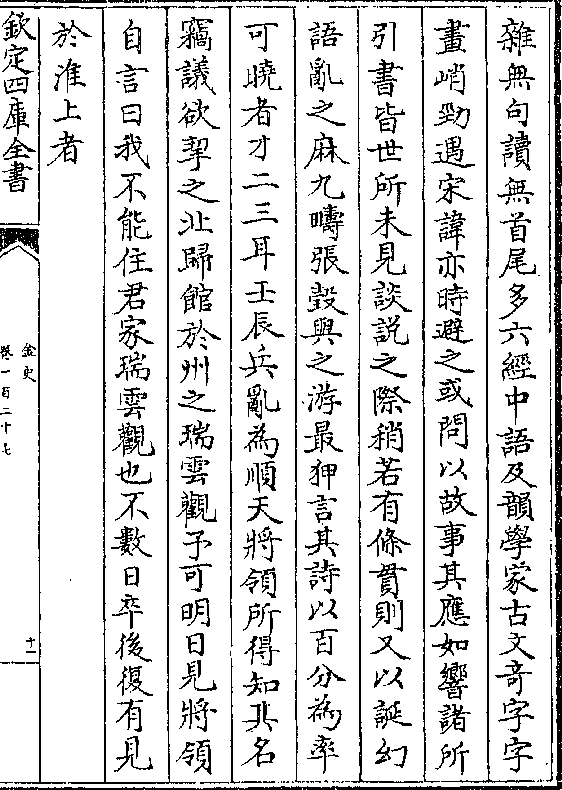 雜無句讀無首尾多六經中語及韻學家古文竒字字
畫峭勁遇宋諱亦時避之或問以故事其應如響諸所
引書皆世所未見談説之際稍若有條貫則又以誕幻
語亂之麻九疇張瑴與之游最狎言其詩以百分為率
可曉者才二三耳壬辰兵亂為順天將領所得知其名
竊議欲挈之北歸館於州之瑞雲觀予可明日見將領
自言曰我不能住君家瑞雲觀也不數日卒後復有見
於淮上者
欽定四庫全書
金史
卷一百二十七
十一